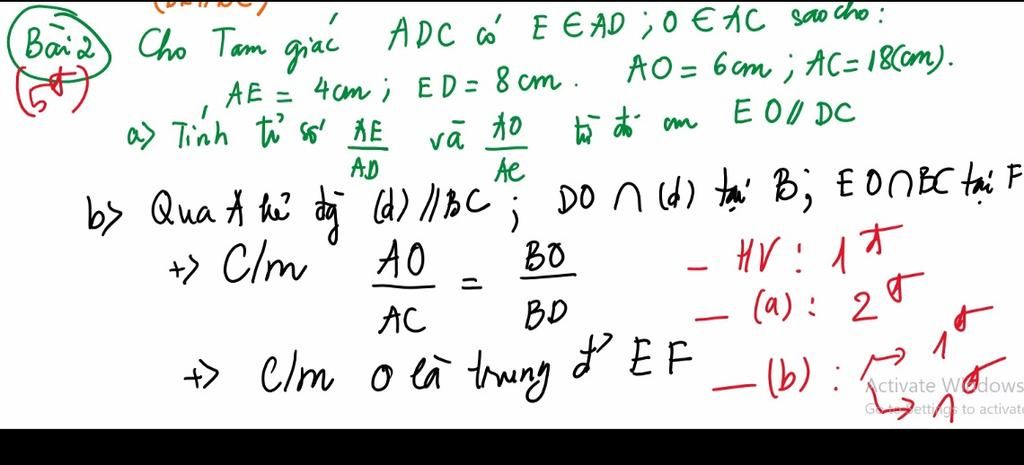 Bài 2 Cho Tam giác ADC có E ∈ AD ; O ∈ AC sao cho :
(5đ) AE = 4cm ; ED = 8cm . AO = 6cm ; AC = 18(cm).
a) Tính tỉ số AE/AD và AO/AC từ đó cm EO // DC
b) Qua A kẻ đg (d) // BC ; DO ∩ (d) tại B ; EO ∩ BC tại F
+) C/m AO/AC = BO/BD
- HV : 1đ
- (a) : 2đ
+) C/m O là trung đ' EF
- (b) : → 1đ
→ 1đ
Activate Windows
Go to Settings to activate